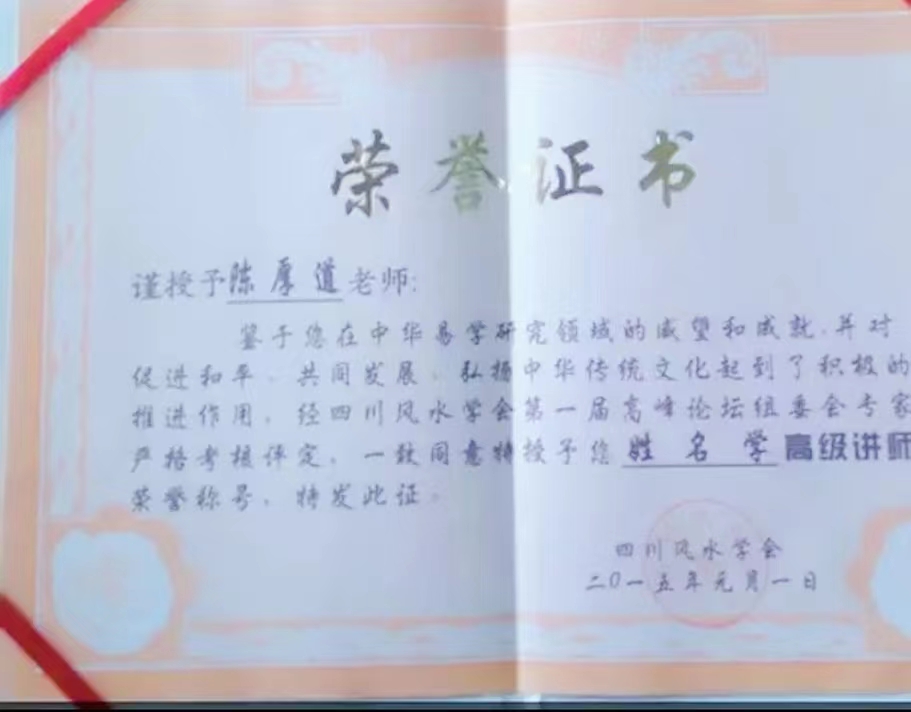 荣誉证书
谨授予陈厚道老师:
鉴于您在中华易学研究领域的威望和成就,并对
促进和平、共同发展、弘扬中华传统文化起到了积极的
推进作用,经四川风水学会第一届高峰论坛组委会专家
严格考核评定,一致同意特授予您姓名学高级讲师
荣誉称号,特发此证。
四川风水学会
二0一五年元月一日